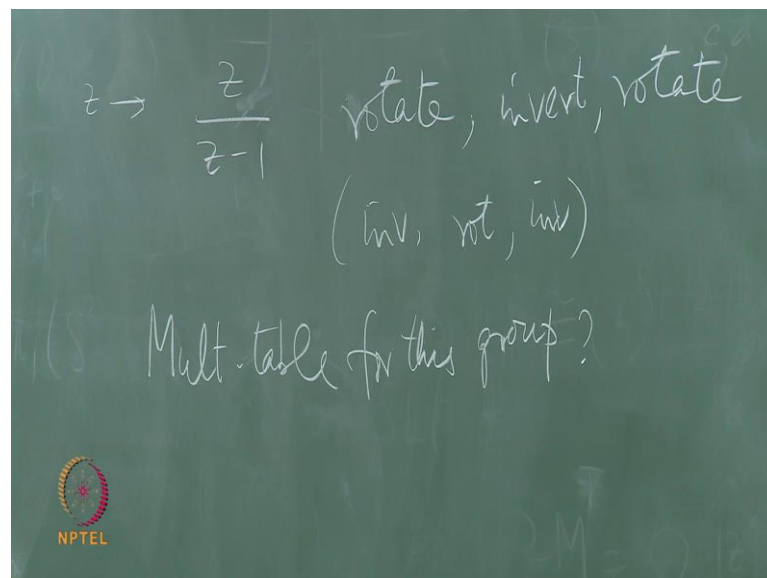 z → z/(z-1) rotate, invert, rotate
(inv, rot, inv)
Mult. table for this group?
NPTEL